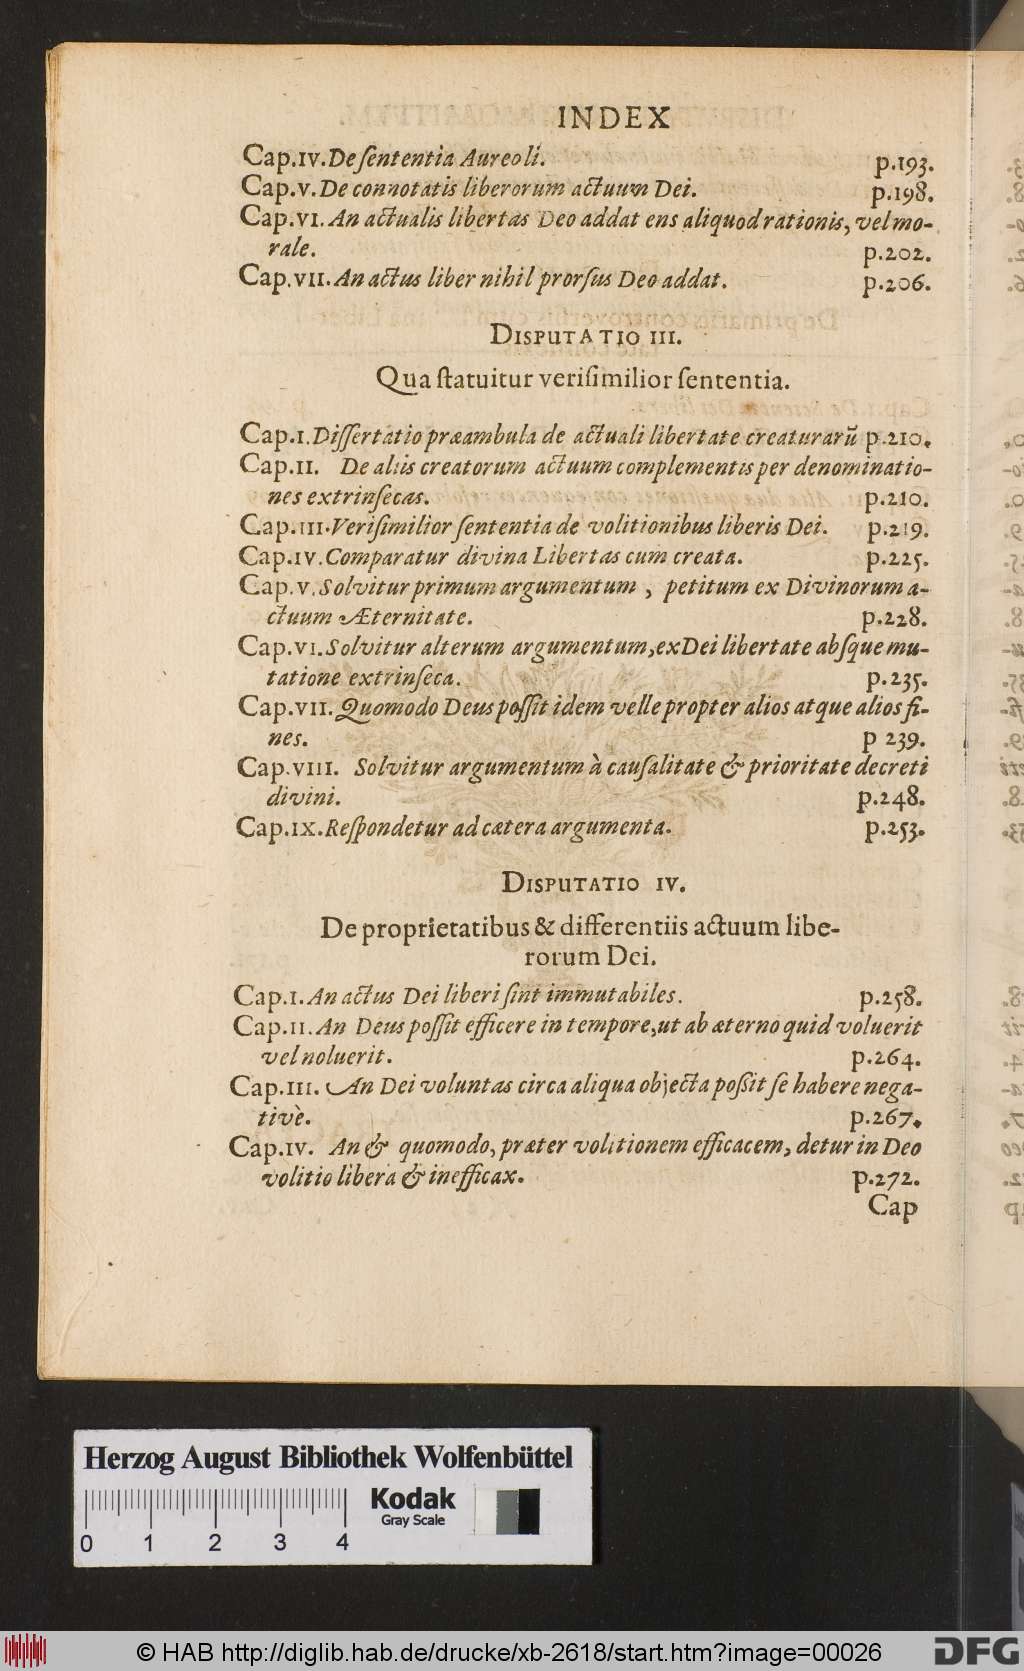 INDEX
Cap.IV. De ſententia Aureoli. p.193.
Cap.V. De connotatis liberorum actuum Dei. p.198.
Cap.VI. An actualis libertas Deo addat ens aliquod rationis, vel mo-
rale. p.202.
Cap.VII. An actus liber nihil prorſus Deo addat. p.206.
DISPUTATIO III.
Qua ſtatuitur veriſimilior ſententia.
Cap.I. Diſſertatio præambula de actuali libertate creaturarū p.210.
Cap.II. De aliis creatorum actuum complementis per denominatio-
nes extrinſecas. p.210.
Cap.III. Veriſimilior ſententia de volitionibus liberis Dei. p.219.
Cap.IV. Comparatur divina Libertas cum creata. p.225.
Cap.V. Solvitur primum argumentum , petitum ex Divinorum a-
ctuum Æternitate. p.228.
Cap.VI. Solvitur alterum argumentum, ex Dei libertate abſque mu-
tatione extrinſeca. p.235.
Cap.VII. Quomodo Deus poſſit idem velle propter alios atque alios fi-
nes. p 239.
Cap.VIII. Solvitur argumentum à cauſalitate & prioritate decreti
divini. p.248.
Cap.IX. Reſpondetur ad cætera argumenta. p.253.
DISPUTATIO IV.
De proprietatibus & differentiis actuum libe-
rorum Dei.
Cap.I. An actus Dei liberi ſint immutabiles. p.258.
Cap.II. An Deus poſſit efficere in tempore, ut ab æterno quid voluerit
vel noluerit. p.264.
Cap.III. An Dei voluntas circa aliqua objecta poßit ſe habere nega-
tivè. p.267.
Cap.IV. An & quomodo, præter volitionem efficacem, detur in Deo
volitio libera & inefficax. p.272.
Cap
Herzog August Bibliothek Wolfenbüttel
Kodak
Gray Scale
0 1 2 3 4
© HAB http://diglib.hab.de/drucke/xb-2618/start.htm?image=00026
DFG